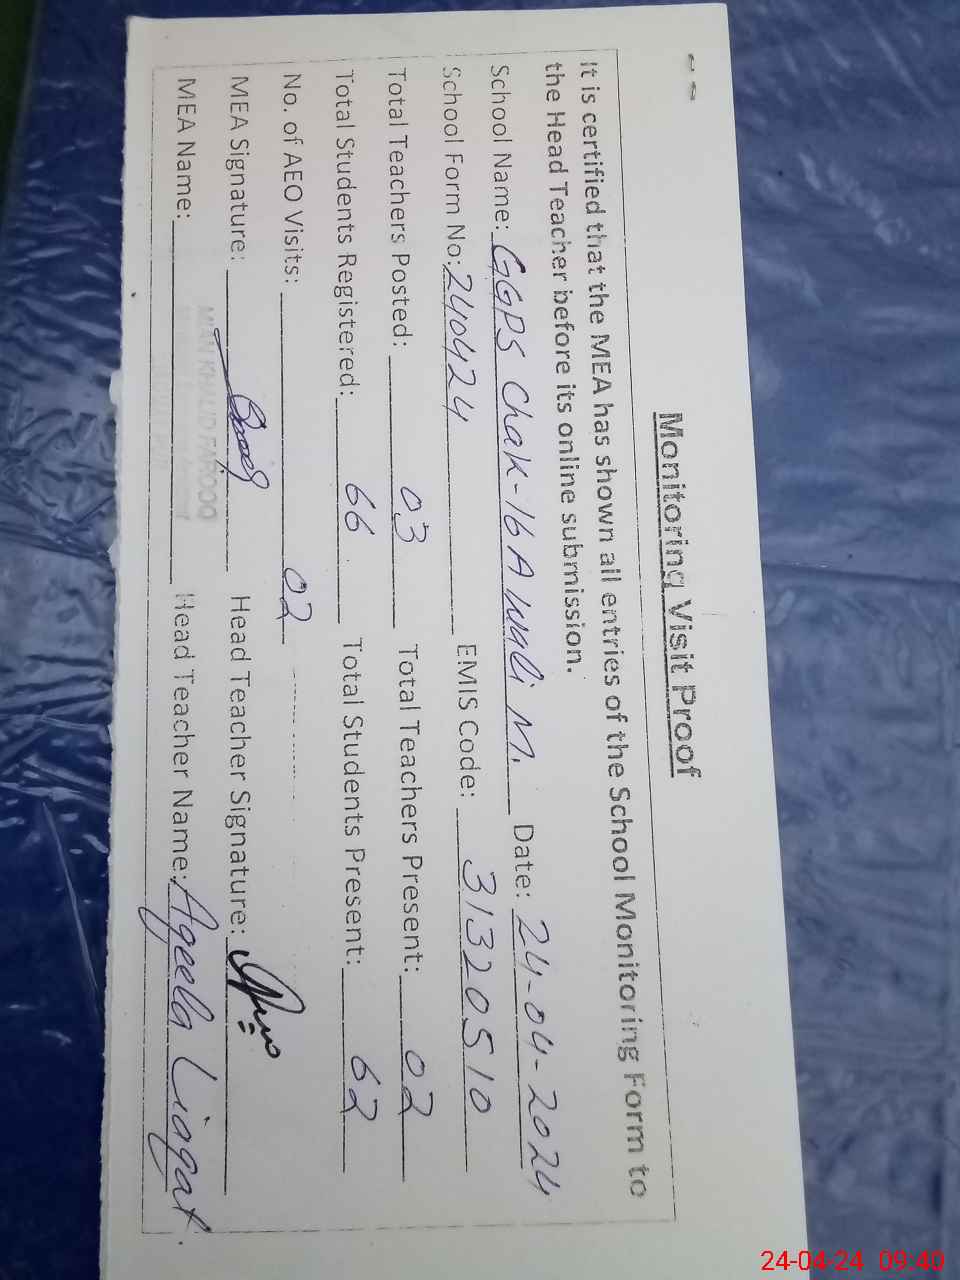 Monitoring Visit Proof
It is certified that the MEA has shown all entries of the School Monitoring Form to
the Head Teacher before its online submission.
School Name: GGPS Chak-16 A Wali M. Date: 24-04-2024
School Form No: 240424 EMIS Code: 31320510
Total Teachers Posted: 03 Total Teachers Present: 02
Total Students Registered: 66 Total Students Present: 62
No. of AEO Visits: 02
MEA Signature: Head Teacher Signature:
MEA Name: KHALID FAROOQ Head Teacher Name: Aqeela Liaqat.
24-04-24 09:40